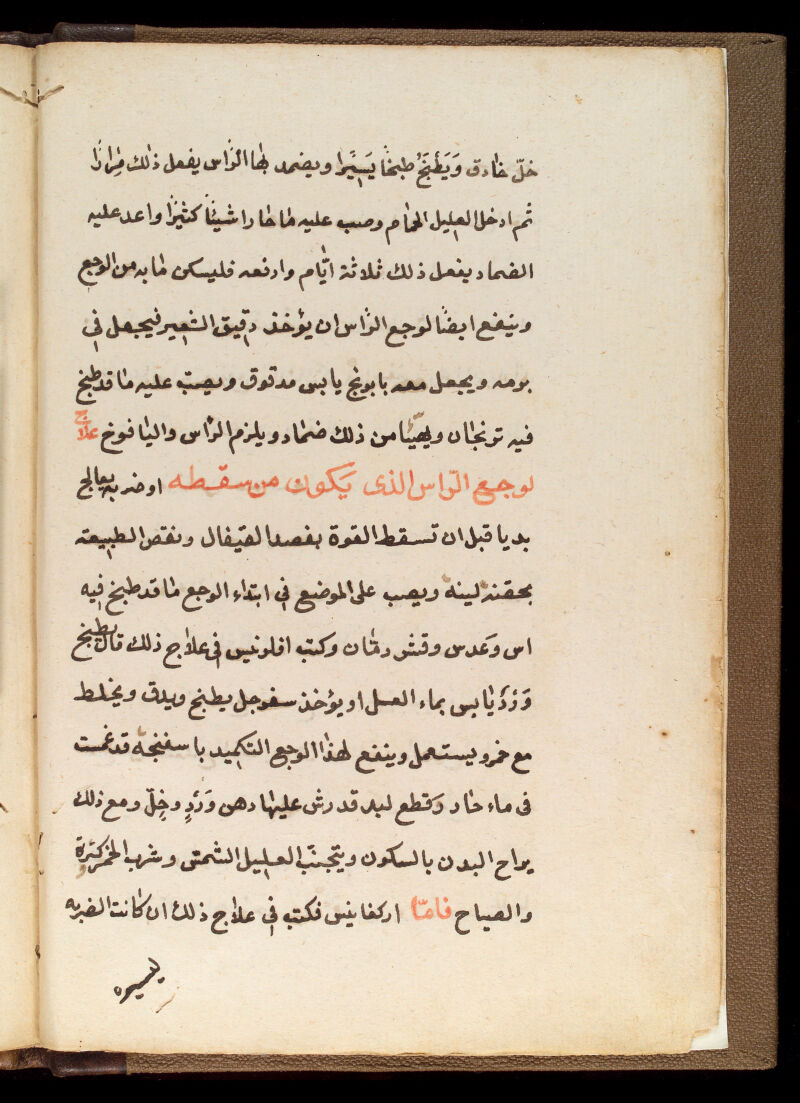 خل حاذق وَيَطْبَخُ طبخًا يَسِيْرًا ويضمد بها الرّاس يفعل ذلك مِرارًا
ثم ادخل العليل الحمام وصب عليه ماحارا شيئًا كثيرًا واعد عليه
الضماد يفعل ذلك ثلاثة ايّام وادفعه فليسكن مابه من الوجع
وينفع ايضًا لوجع الرّاس ان يؤخذ دقيق الشعير فيجعل في
بومه ويجعل معه بابونج يابس مدقوق ويصبّ عليه ما قد طبخ
فيه ترنجان ويهيّئا من ذلك ضماد ويلزم الرّاس واليافوخ علاج
لوجع الرّاس الذى يكون من سقطه او ضربه يعالج
بديا قبل ان تسقط القوة بفصد القيفال ونقص الطبيعته
بحقنه لينه ويصب على الموضع في ابتداء الوجع ما قد طبخ فيه
اس وعدس وقشر رمّان وكتب افلونيس في علاج ذلك قال يطبخ
وَرْدْ يابس بماء العسل او يؤخذ سفرجل يطبخ ويدق ويخلط
مع خمر ويستعمل وينفع لهذا الوجع التكميد باسفنجه قد غمست
فى ماء حار وقطع لبد قد رش عليها دهن وَرْدٍ وخِلّ ومع ذلك
يراح البدن بالسكون ويتجنّب العليل الشمس وشرب الخمر كثرة
والصياح فامّا اركفانيس فكتب في علاج ذلك ان كانت الضربه
يسيره